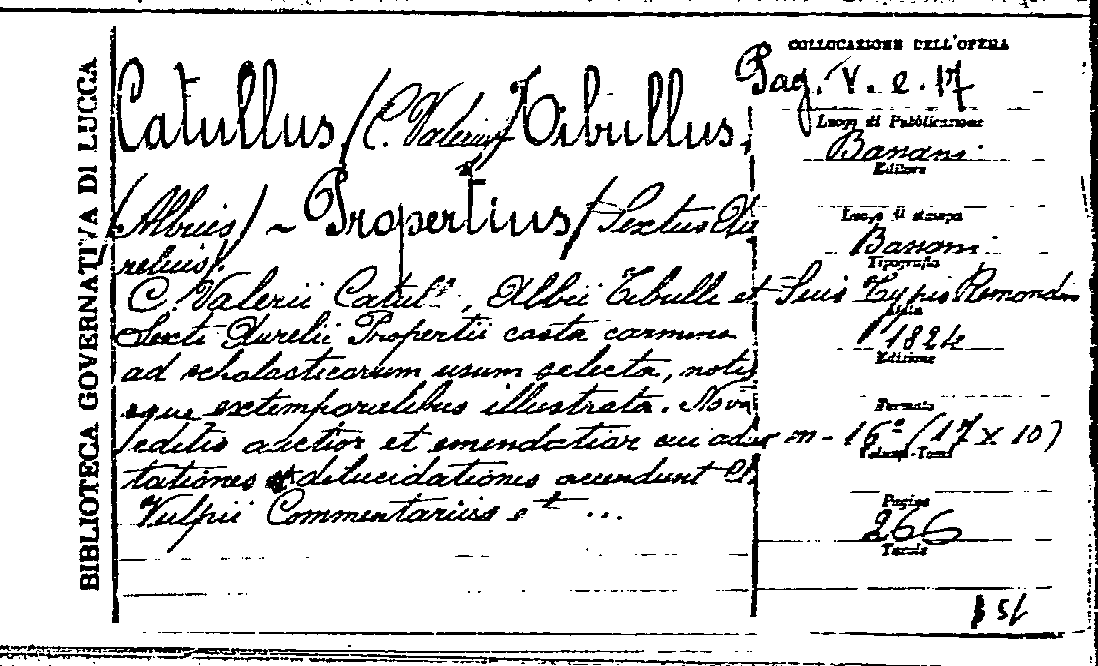 BIBLIOTECA GOVERNATIVA DI LUCCA
Catullus (C. Valerius) Tibullus,
(Albius) ~ Propertius (Sextus Au
relius).
C. Valerii Catul , Albii Tibulli et
Sexti Aurelii Propertii casta carmina
ad scholasticorum usum selecta, notis
que extemporalibus illustrata. Nova
editio auctior et emendatior cui ad
tationes dilucidationes accendunt
Vulpii Commentariis et ...
COLLOCAZIONE DELL'OPERA
Pag. V. e. 17
Luogo di Pubblicazione
Bassani
Editore
Luogo di stampa
Bassani
Tipografia
Suis Typis Remondin
Data
1824
Edizione
Formato
in - 16° (17 x 10)
Volumi-Tomi
Pagine
266
Tavole